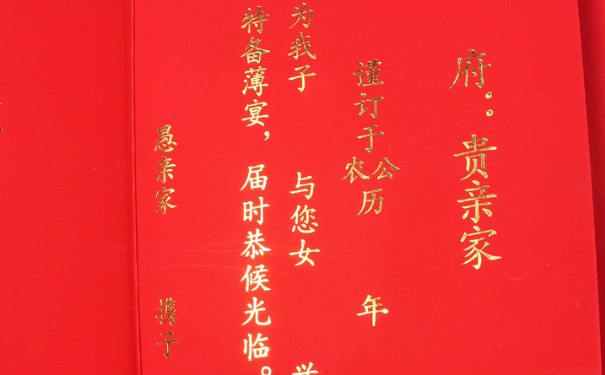 府：贵亲家
谨订于公历 年
农
为我子 与您女
特备薄宴，届时恭候光临。
愚亲家 携子